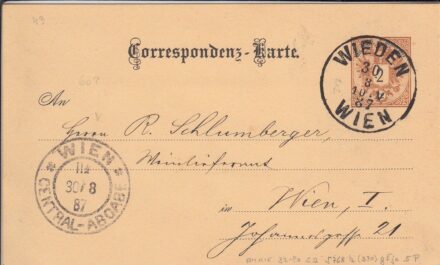 Correspondenz-Karte.
WIEDEN
30/2
8
10.V
87
WIEN
An
Herrn R. Schlumberger,
Weinlieferant
in Wien, I.
Johannesgasse 21
* WIEN *
11½
30/8
87
CENTRAL-ABGABE